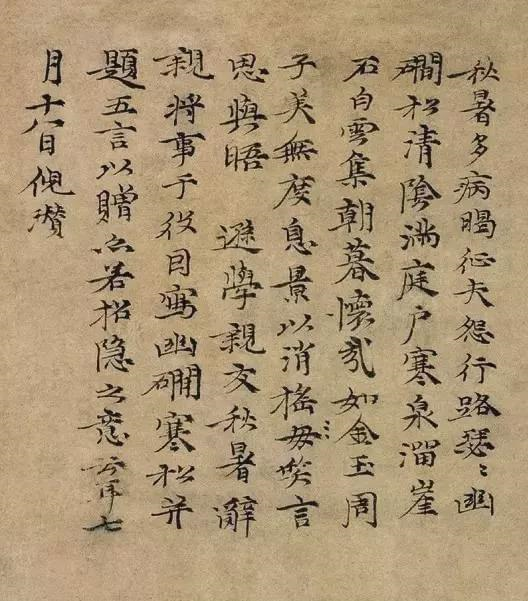 秋暑多病暍征夫怨行路瑟〻幽
磵松清陰滿庭戶寒泉溜崖
石白雲集朝暮懷哉如金玉周
子美無度息景以消搖毋〻笑言
思與晤　遜學親友秋暑辭
親將事于役因寫幽磵寒松并
題五言以贈亦若招隱之意云耳七
月十八日倪瓚